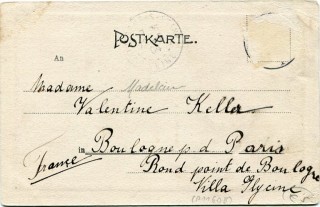 POSTKARTE.
An
Madame Madeleine
Valentine Kella
in Boulogne p. d. Paris
France
Rond point de Boulogne
Villa Glycine